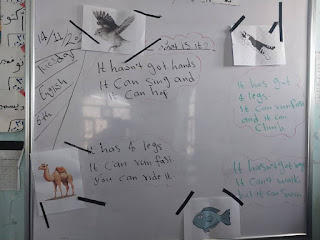 14/11/20
English
6th
what is it?
It hasn't got hands
It can sing and
It can hop
It has got
4 legs
It can run fast
and it can
climb
It has 4 legs
It can run fast
you can ride it
It hasn't got legs
It can't walk
but it can swim